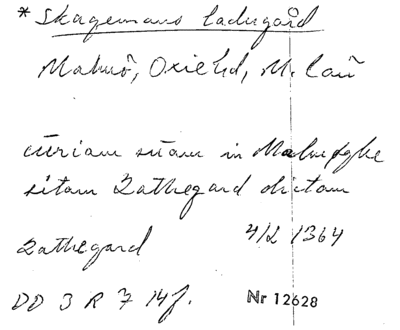 * Skagemans ladugård
Malmö, Oxie hd, M. län
curiam suam in Malmøghe
sitam Lathegard dictam
Lathegard 4/2 1364
DD 3 R 7 14f.
Nr 12628